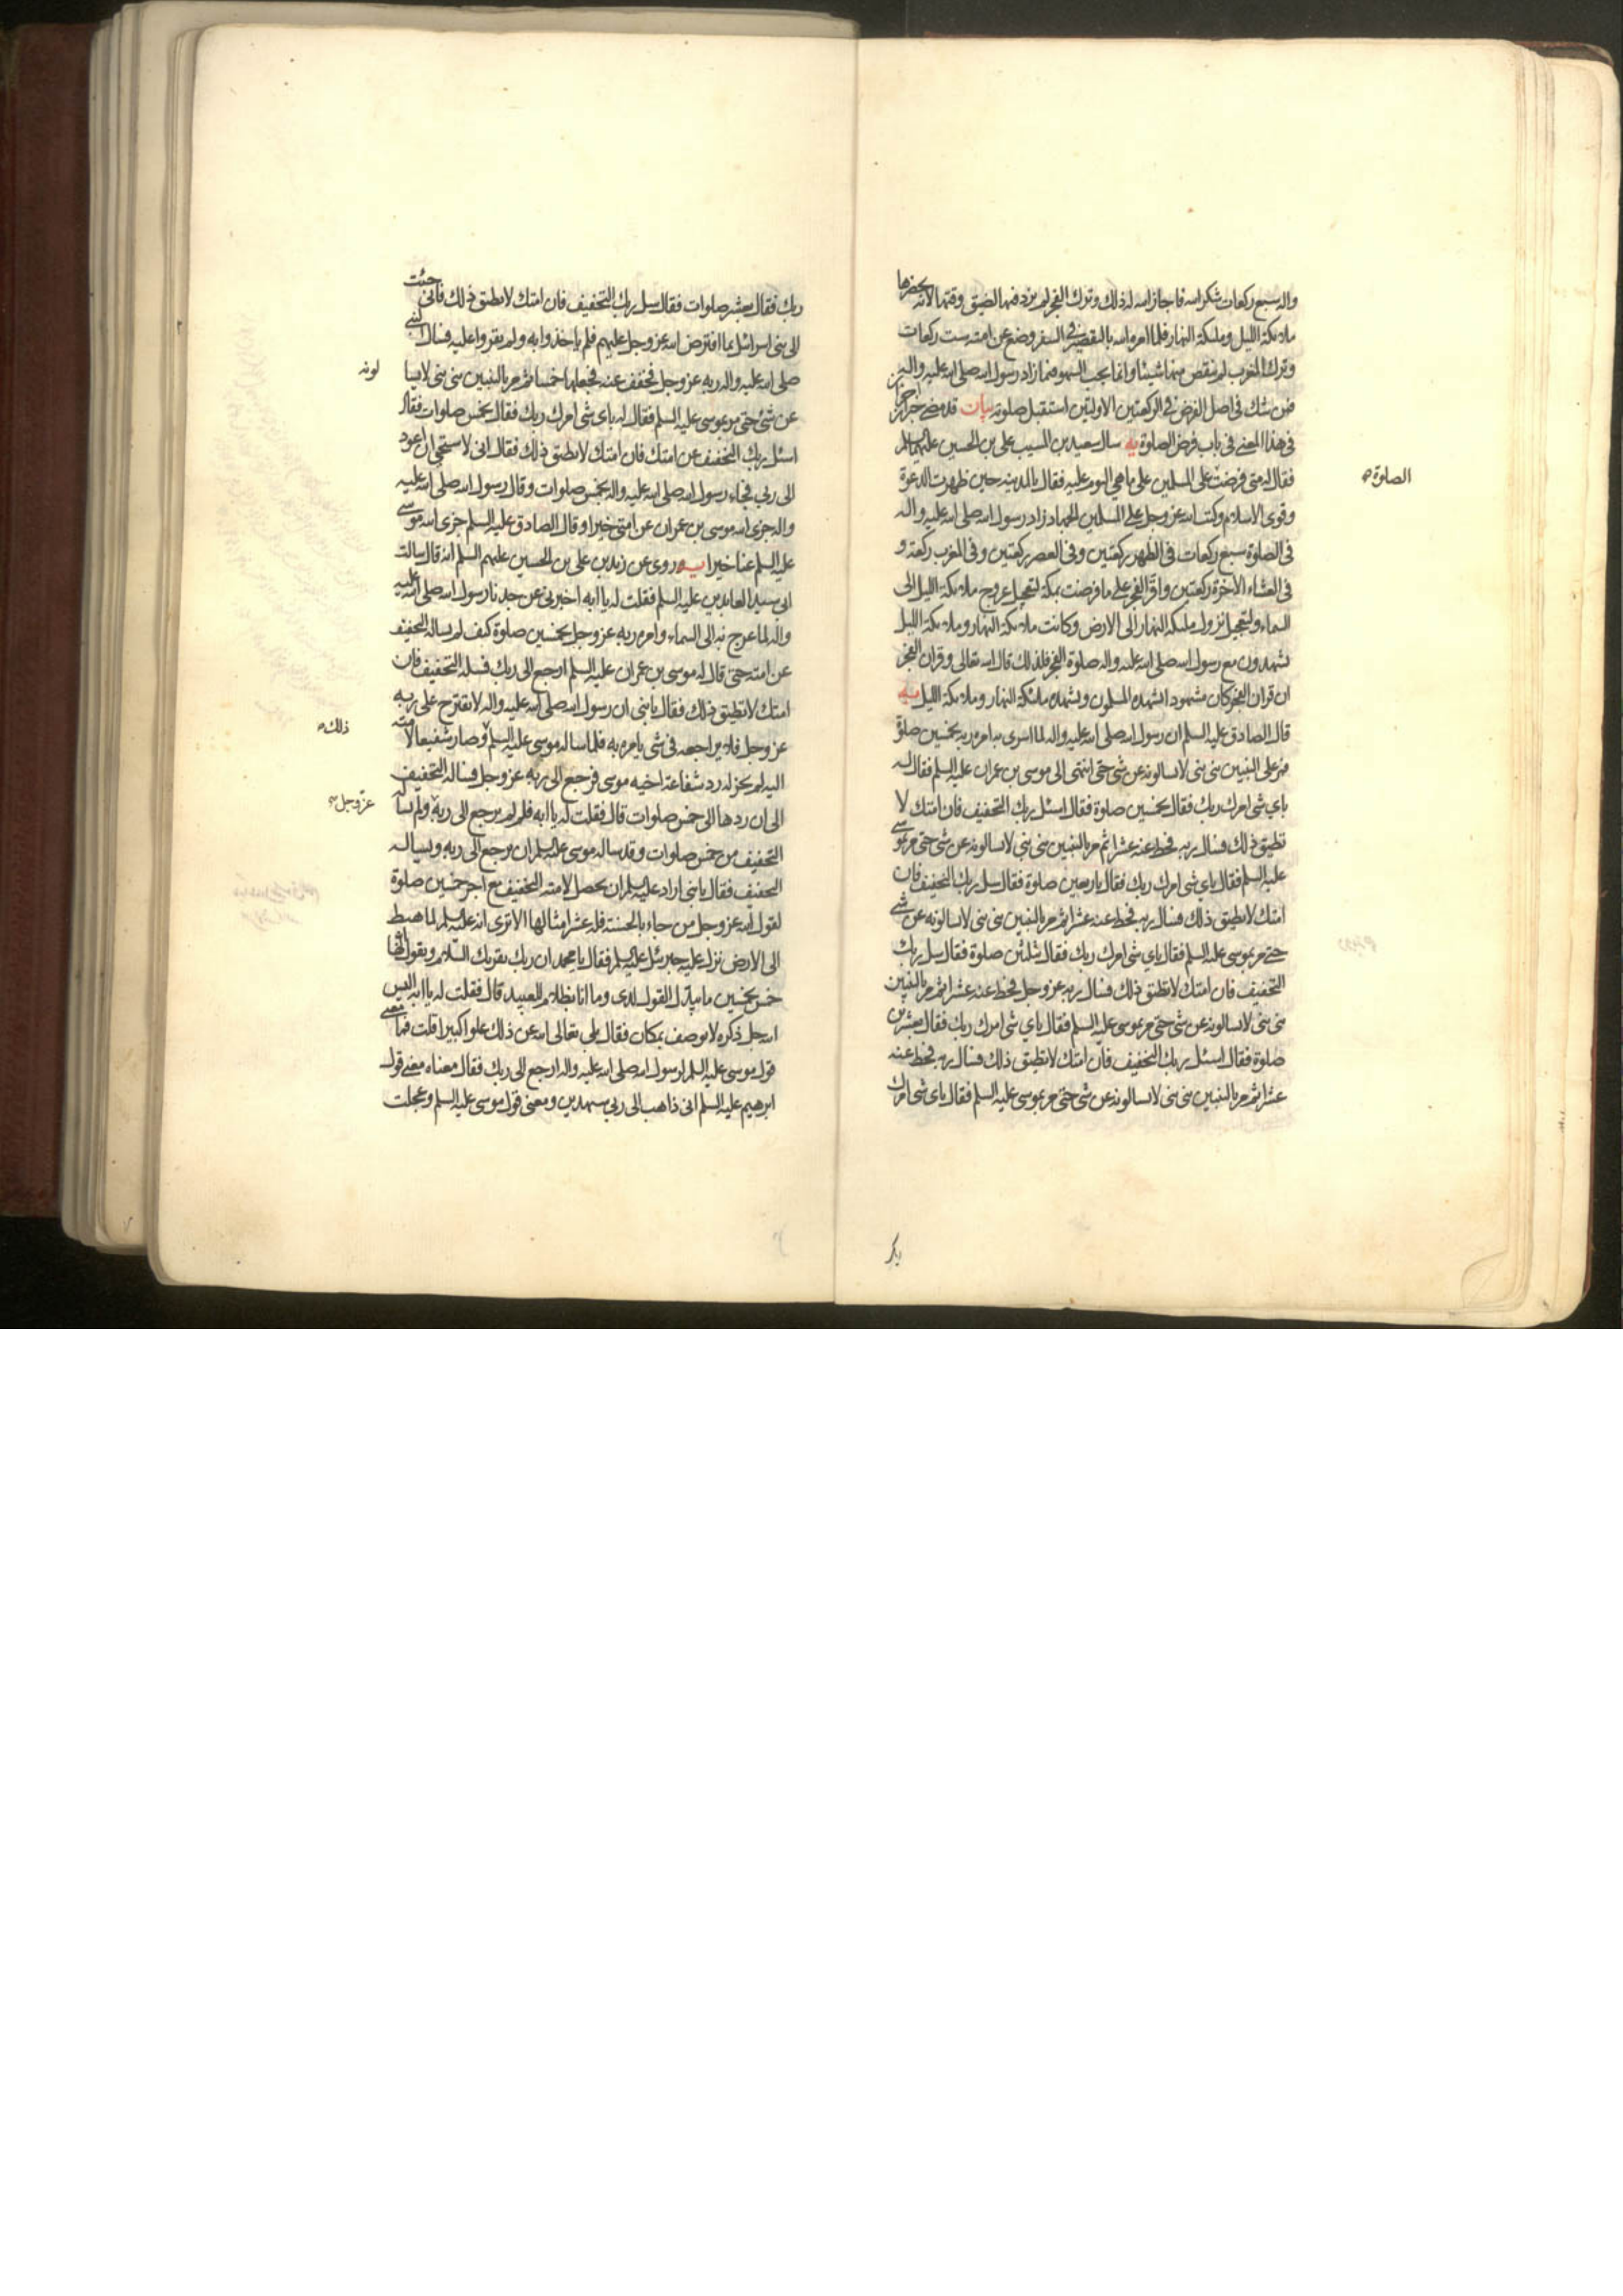 واله سبع ركعات شكرا لله فاجاز الله له ذلك وترك الفجر لم يزد فيها لضيق وقتها لانه يحضرها
ملائكة الليل وملئكة النهار فلما امره الله بالتقصير في السفر وضع عن امته ست ركعات
وترك المغرب لم ينقص منها شيئا وانما يجب السهو فيما زاد رسول الله صلى الله عليه واله فمن
شك في اصل الفرض في الركعتين الاولتين استقبل صلوته بيان قد مضى خبر اخر
في هذا المعنى في باب فرض الصلوة يه سال سعيد بن المسيب على بن الحسين عليهما السلم
فقال له متى فرضت على المسلمين على ما هي اليوم عليه فقال بالمدينة حين ظهرت الدعوة
الصلوة
وقوى الاسلام وكتب الله عز وجل على المسلمين الجهاد زاد رسول الله صلى الله عليه واله
في الصلوة سبع ركعات في الظهر ركعتين وفي العصر ركعتين وفي المغرب ركعة و
في العشاء الاخرة ركعتين واقر الفجر على ما فرضت بمكة لتعجيل عروج ملائكة الليل الى
السماء ولتعجيل نزول ملئكة النهار الى الارض وكانت ملائكة النهار وملائكة الليل
يشهدون مع رسول الله صلى الله عليه واله صلوة الفجر فلذلك قال الله تعالى وقران الفجر
ان قران الفجر كان مشهودا يشهده المسلمون ويشهده ملئكة النهار وملائكة الليل يه
قال الصادق عليه السلم ان رسول الله صلى الله عليه واله لما اسرى به امره ربه بخمسين صلوة
فمر على النبيين نبى نبى لا يسالونه عن شى حتى انتهى الى موسى بن عمران عليه السلم فقال له
باي شى امرك ربك فقال بخمسين صلوة فقال اسئل ربك التخفيف فان امتك لا
تطيق ذلك فسال ربه فحط عنه عشرا ثم مر بالنبيين نبى نبى لا يسالونه عن شى حتى مر بموسى
عليه السلم فقال باي شى امرك ربك فقال باربعين صلوة فقال سل ربك التخفيف فان
امتك لا تطيق ذلك فسال ربه فحط عنه عشرا ثم مر بالنبيين نبى نبى لا يسالونه عن شى
حتى مر بموسى عليه السلم فقال باي شى امرك ربك فقال بثلثين صلوة فقال سل ربك
التخفيف فان امتك لا تطيق ذلك فسال ربه عز وجل فحط عنه عشرا ثم مر بالنبيين
نبى نبى لا يسالونه عن شى حتى مر بموسى عليه السلم فقال باي شى امرك ربك فقال بعشرين
صلوة فقال اسئل ربك التخفيف فان امتك لا تطيق ذلك فسال ربه فحط عنه
عشرا ثم مر بالنبيين نبى نبى لا يسالونه عن شى حتى مر بموسى عليه السلم فقال باى شى امرك
ربك
ربك فقال بعشر صلوات فقال سل ربك التخفيف فان امتك لا تطيق ذلك فانى جئت
الى بنى اسرائل بما افترض الله عز وجل عليهم فلم ياخذوا به ولم يقروا عليه فسال النبى
صلى الله عليه واله ربه عز وجل فخفف عنه فجعلها خمسا ثم مر بالنبيين نبى نبى لا يسا
لونه
عن شئ حتى مر بموسى عليه السلم فقال له باى شى امرك ربك فقال بخمس صلوات فقال
اسئل ربك التخفيف عن امتك فان امتك لا تطيق ذلك فقال انى لاستحى ان اعود
الى ربى فجاء رسول الله صلى الله عليه واله بخمس صلوات وقال رسول الله صلى الله عليه
واله جزى الله موسى بن عمران عن امتى خيرا وقال الصادق عليه السلم جزى الله موسى
عليه السلم عنا خيرا يه وروى عن زيد بن على بن الحسين عليهم السلم انه قال سالت
ابى سيد العابدين عليه السلم فقلت له يا ابه اخبرنى عن جدنا رسول الله صلى الله عليه
واله لما عرج به الى السماء وامره ربه عز وجل بخمسين صلوة كيف لم يساله التخفيف
عن امته حتى قال له موسى بن عمران عليه السلم ارجع الى ربك فسله التخفيف فان
امتك لا تطيق ذلك فقال يا بنى ان رسول الله صلى الله عليه واله لا يقترح على ربه
عز وجل فلا يراجعه فى شى يامره به فلما ساله موسى عليه السلم وصار شفيعا لامته
ذلك
اليه لم يجز له رد شفاعة اخيه موسى فرجع الى ربه عز وجل فساله التخفيف
الى ان ردها الى خمس صلوات قال فقلت له يا ابه فلم لم يرجع الى ربه ولم يساله
عز وجل
التخفيف من خمس صلوات وقد ساله موسى عليه السلم ان يرجع الى ربه ويساله
التخفيف فقال يا بنى اراد عليه السلم ان يحصل لامته التخفيف مع اجر خمسين صلوة
لقول الله عز وجل من جاء بالحسنة فله عشر امثالها الا ترى انه عليه السلم لما هبط
الى الارض نزل عليه جبرئيل عليه السلم فقال يا محمد ان ربك يقرئك السلام ويقول انها
خمس بخمسين ما يبدل القول لدى وما انا بظلام للعبيد قال فقلت له يا ابه اليس
الله جل ذكره لا يوصف بمكان فقال بلى تعالى الله عن ذلك علوا كبيرا قلت فما معنى
قول موسى عليه السلم لرسول الله صلى الله عليه واله ارجع الى ربك فقال معناه معنى قول
ابرهيم عليه السلم انى ذاهب الى ربى سيهدين ومعنى قول موسى عليه السلم وعجلت